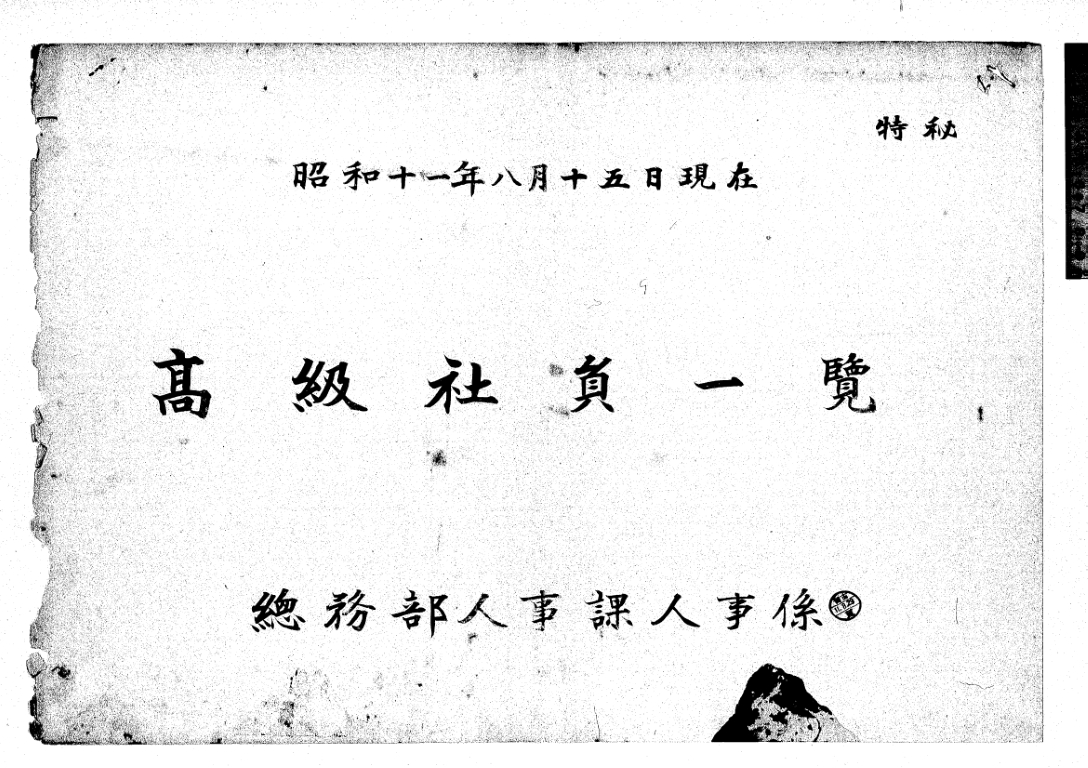 特秘
昭和十一年八月十五日現在
髙級社員一覽
總務部人事課人事係